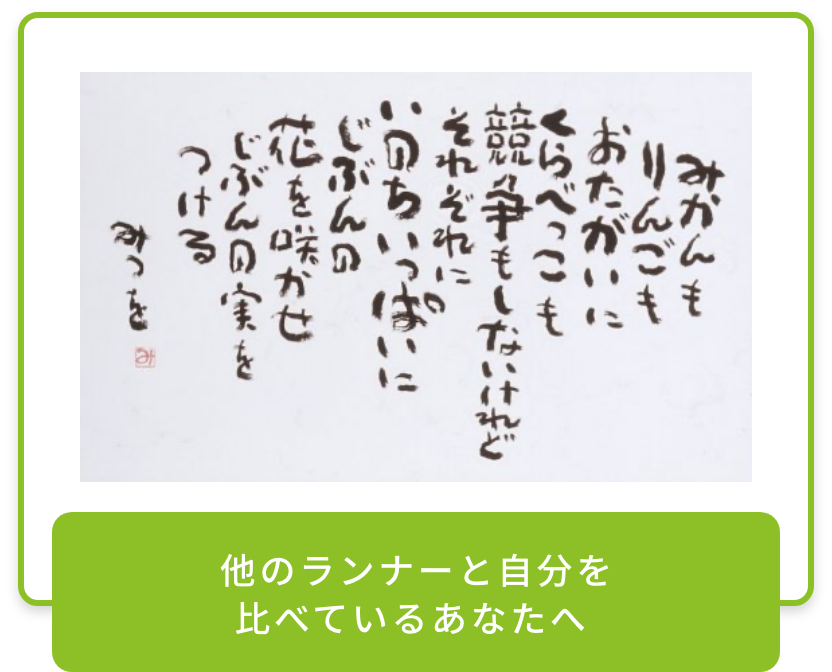 みかんも
りんごも
おたがいに
くらべっこも
競争もしないけれど
それぞれに
いのちいっぱいに
じぶんの
花を咲かせ
じぶんの実を
つける
みつを
み
他のランナーと自分を
比べているあなたへ